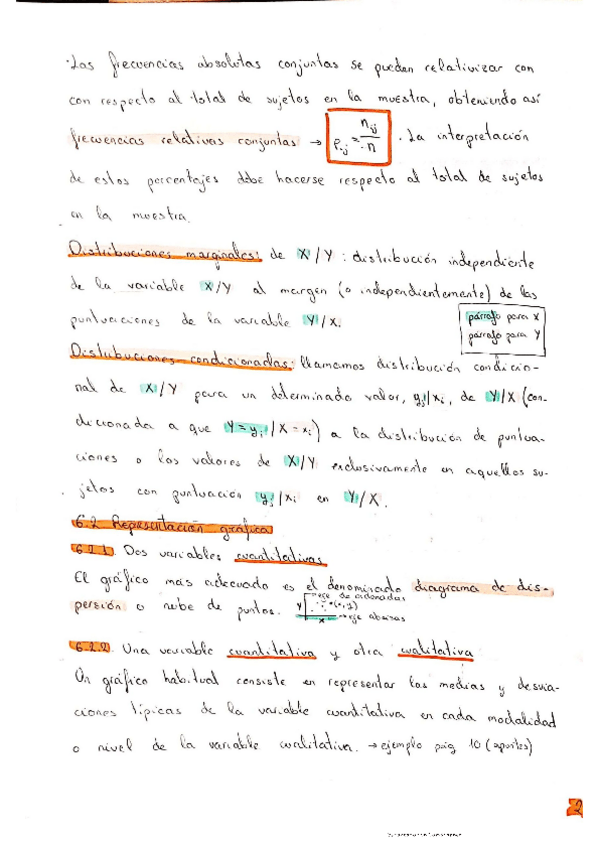 ·Las frecuencias absolutas conjuntas se pueden relativizar con
con respecto al total de sujetos en la muestra, obteniendo así
frecuencias relativas conjuntas → Pij = nij / n . La interpretación
de estos porcentajes debe hacerse respecto al total de sujetos
en la muestra.
Distribuciones marginales: de X/Y: distribución independiente
de la variable X/Y al margen (o independientemente) de las
puntuaciones de la variable Y/X.
párrafo para X
párrafo para Y
Distribuciones condicionadas: llamamos distribución condicio-
nal de X/Y para un determinado valor, yj/xi, de Y/X (con-
dicionada a que Y=yj/X=xi) a la distribución de puntua-
ciones o los valores de X/Y exclusivamente en aquellos su-
jetos con puntuación yj/xi en Y/X.
6.2 Representación gráfica
6.2.1. Dos variables cuantitativas
El gráfico más adecuado es el denominado diagrama de dis-
persión o nube de puntos.
eje de ordenadas
Y
X
→eje abcisas
6.2.2. Una variable cuantitativa y otra cualitativa
Un gráfico habitual consiste en representar las medias y desvia-
ciones típicas de la variable cuantitativa en cada modalidad
o nivel de la variable cualitativa. →ejemplo pág 10 (apuntes)
2